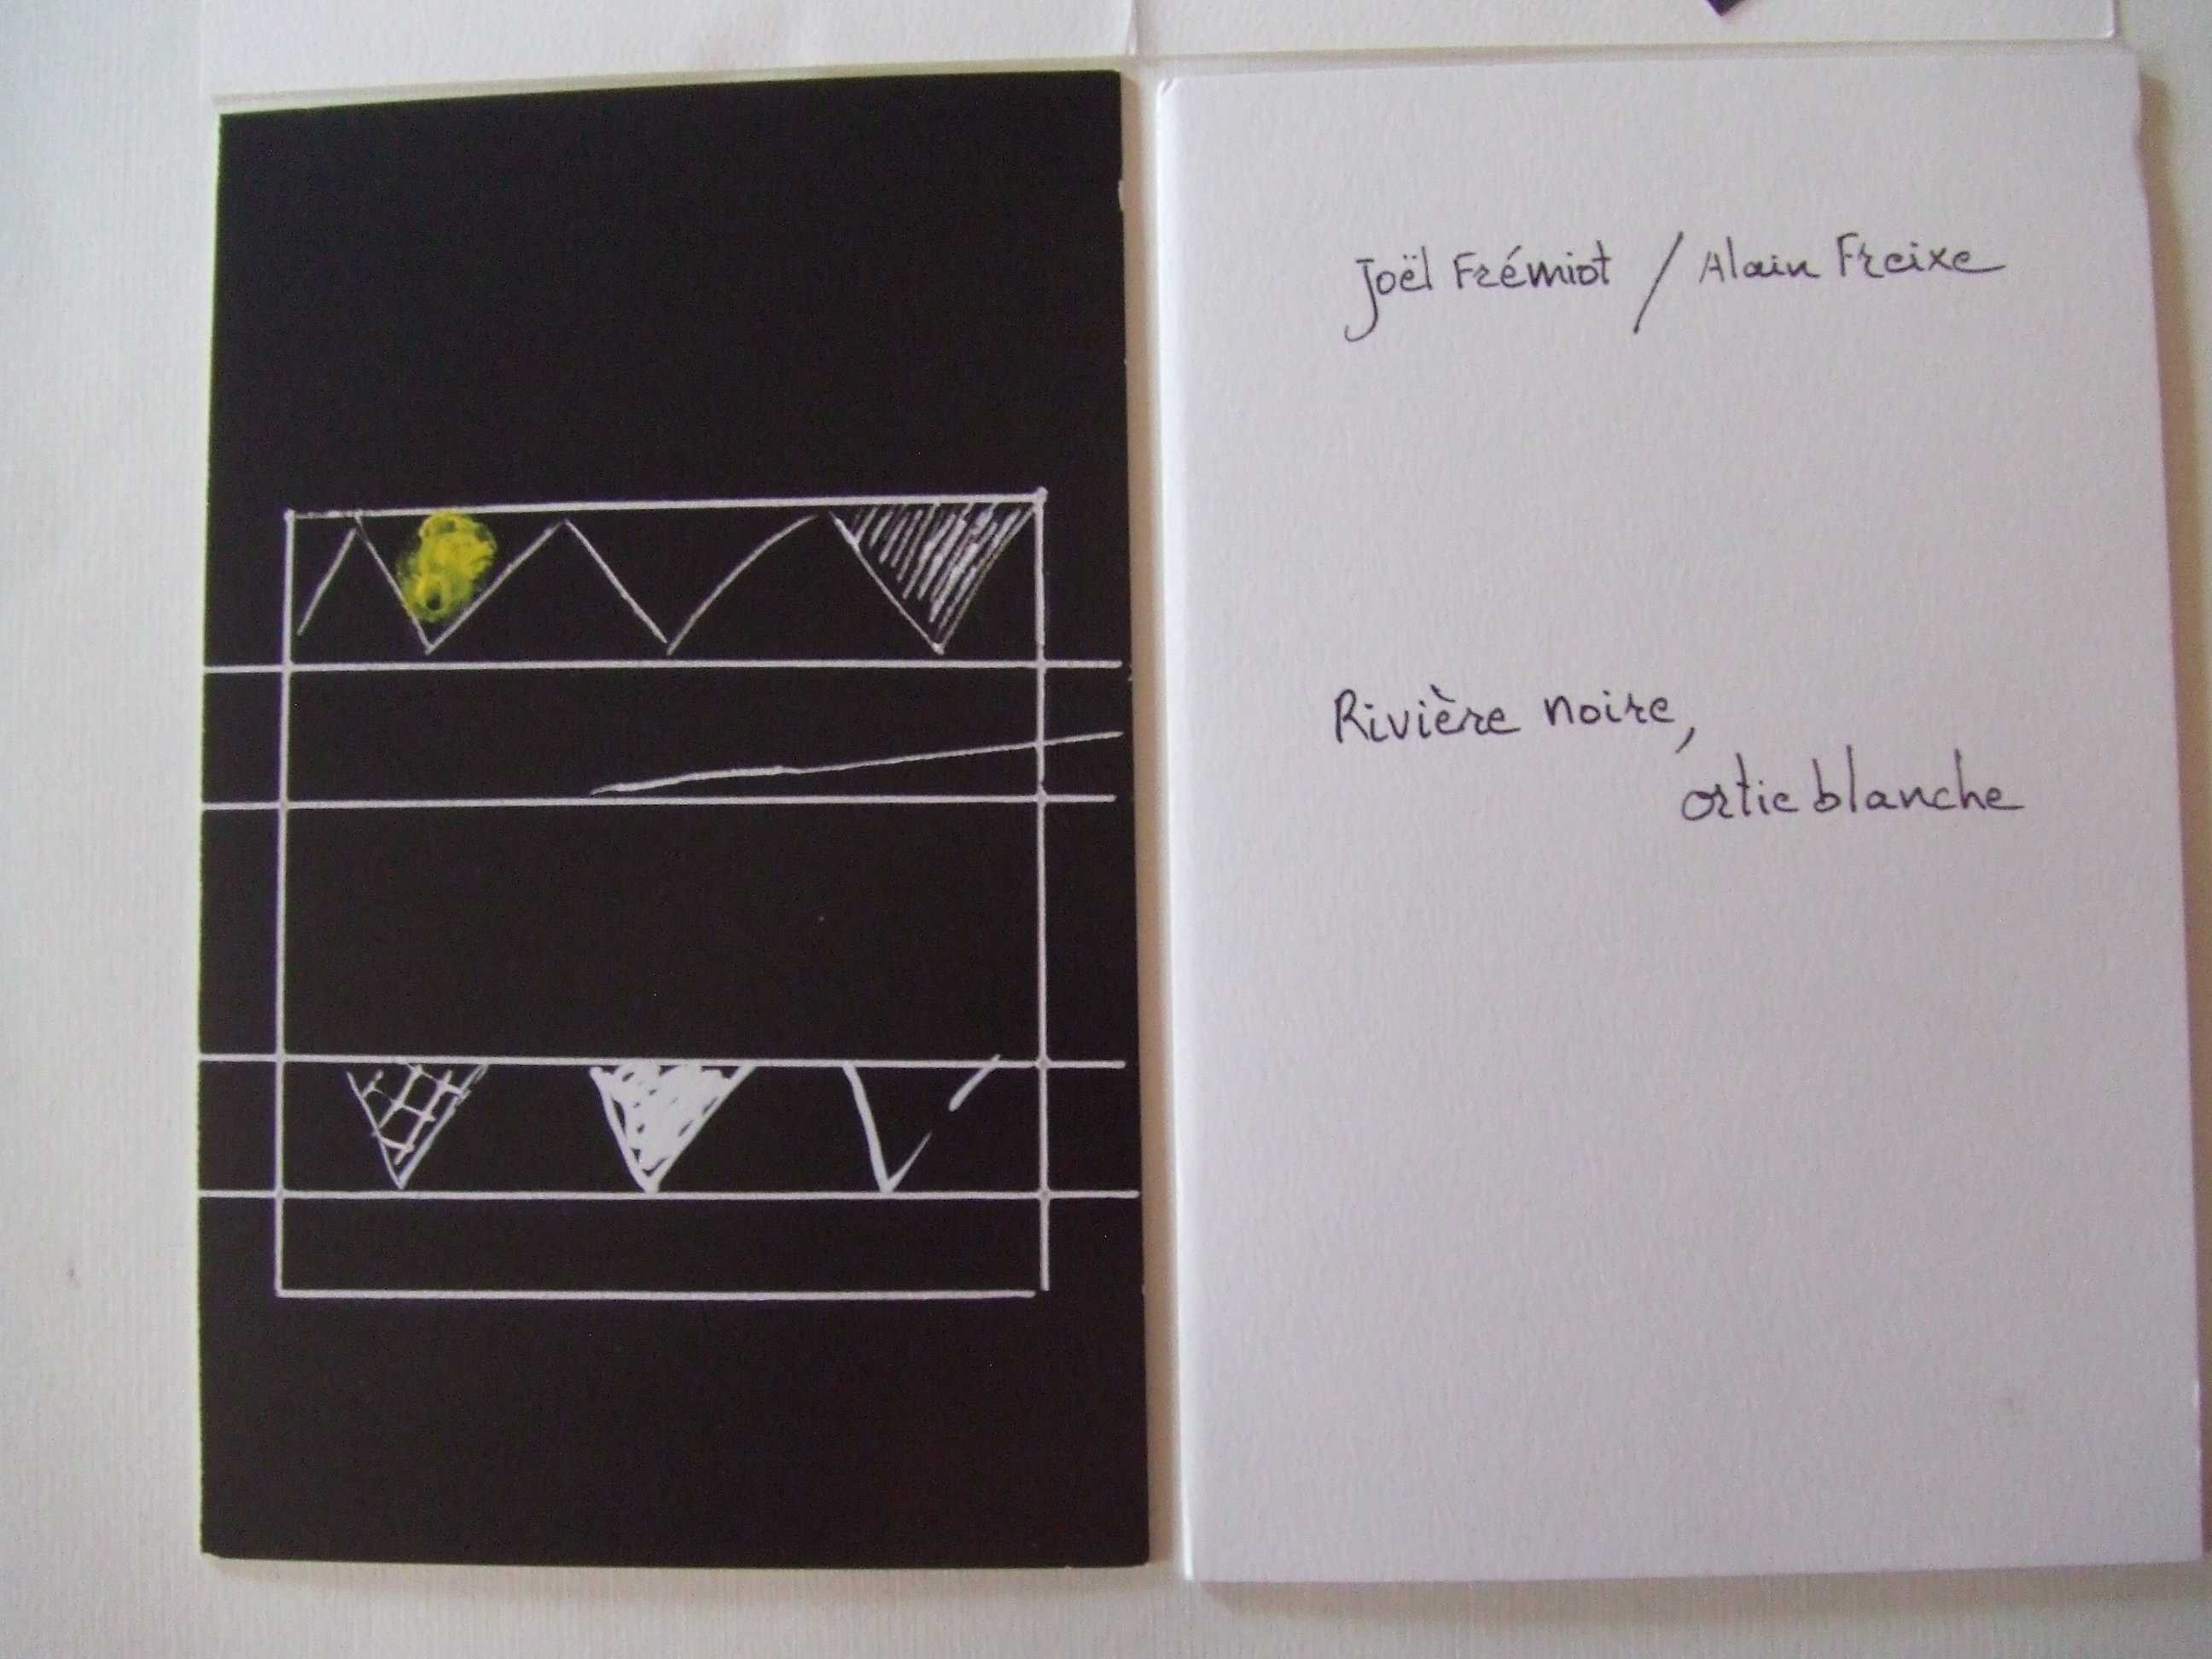 Joël Frémiot / Alain Freixe
Rivière noire,
ortie blanche